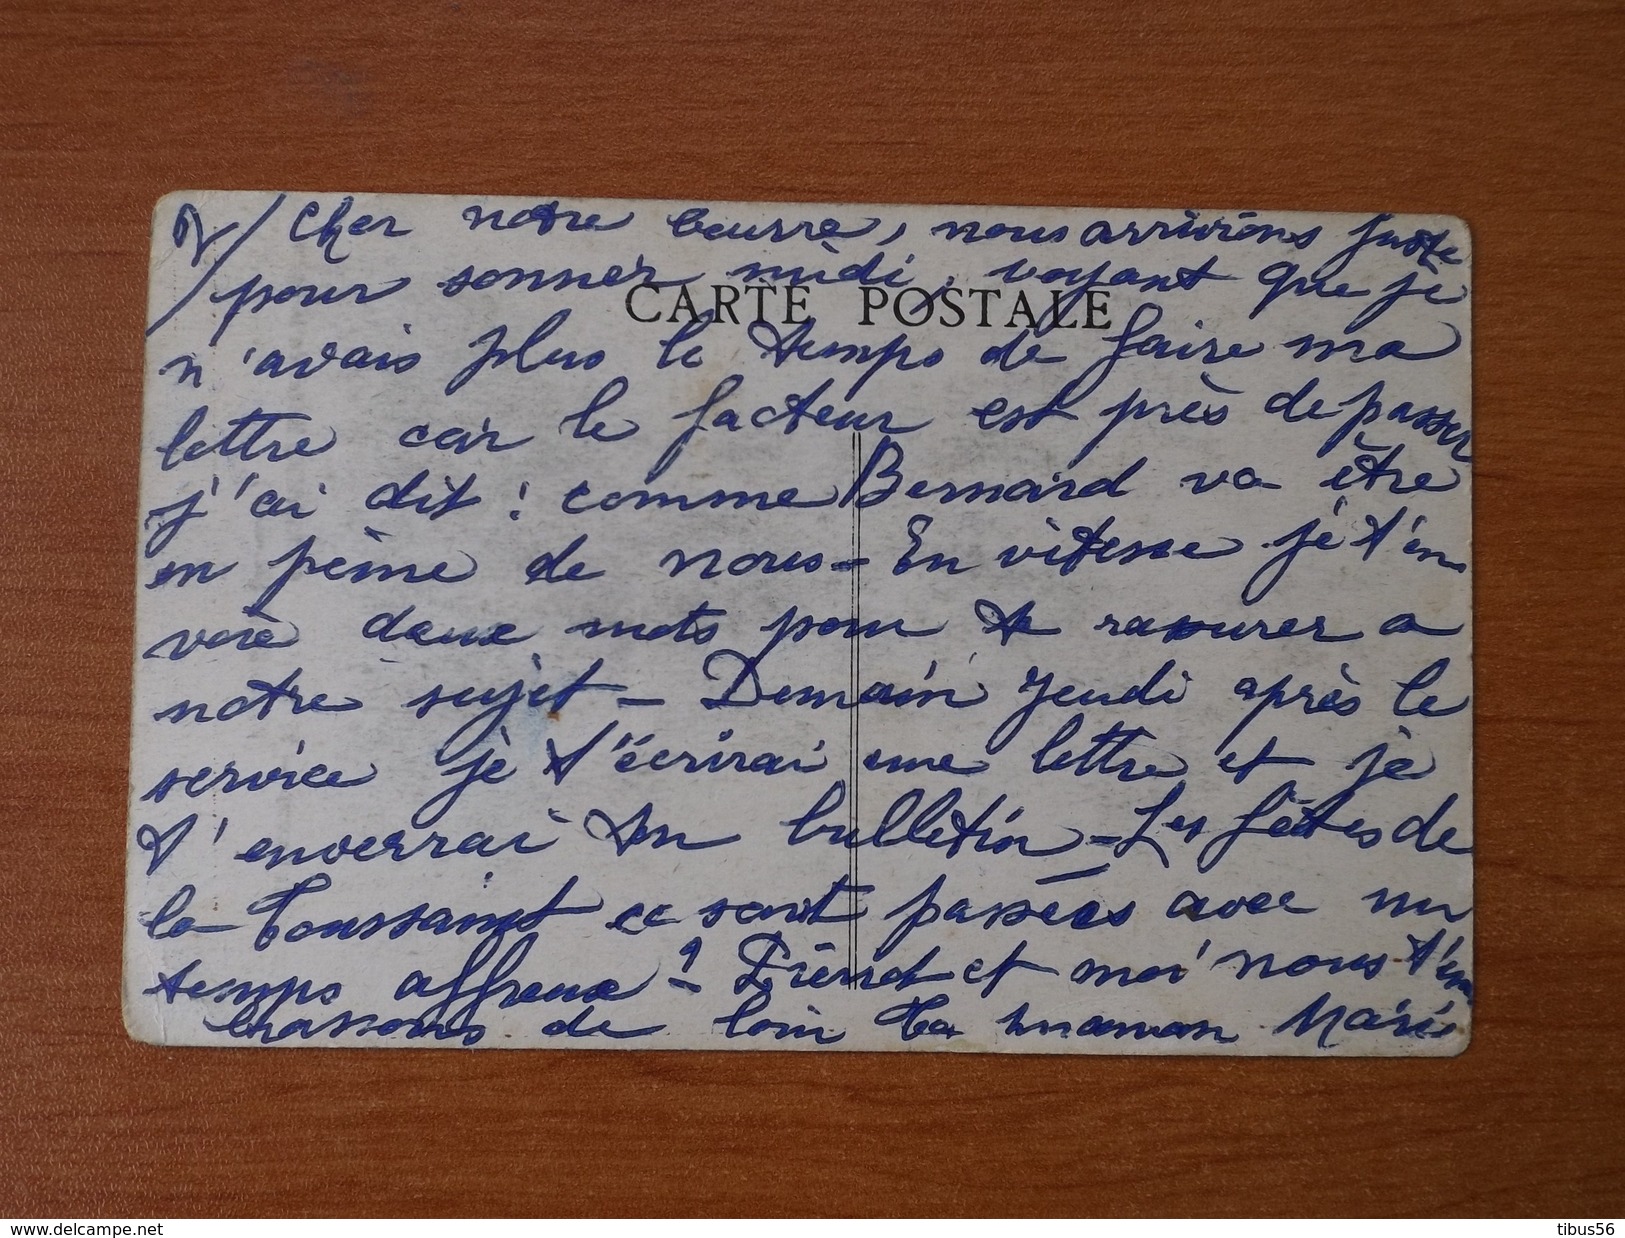 2/ Cher notre beurre, nous arrivions juste
pour sonner midi, voyant que je
CARTE POSTALE
n'avais plus le temps de faire ma
lettre car le facteur est près de passer
j'ai dit : comme Bernard va être
en peine de nous - En vitesse je t'en
voie deux mots pour te rassurer a
notre sujet - Demain Jeudi après le
service je t'écrirai une lettre et je
t'enverrai ton bulletin - Les fêtes de
la Toussaint ce sont passées avec un
temps affreux ! Pierrot et moi nous t'em
brassons de loin Ta maman Marie
delcampe.net
tibus56